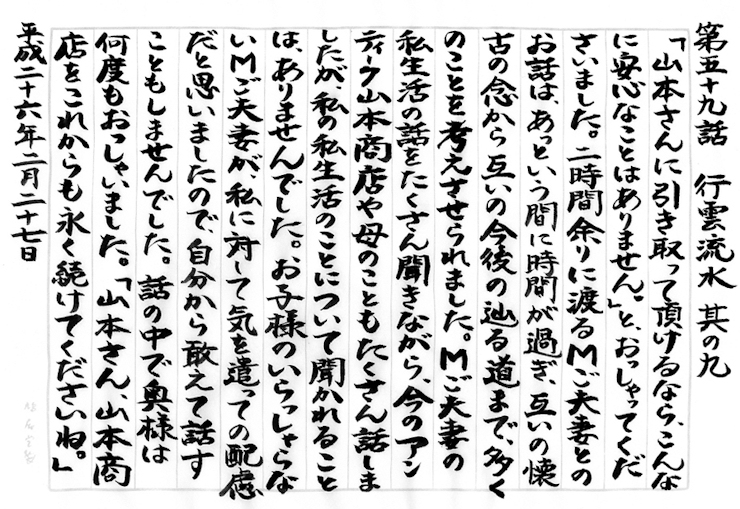 第五十九話　行雲流水　其の九
「山本さんに引き取って頂けるなら、こんな
に安心なことはありません。」と、おっしゃってくだ
さいました。二時間余りに渡るMご夫妻との
お話は、あっという間に時間が過ぎ、互いの懐
古の念から互いの今後の辿る道まで、多く
のことを考えさせられました。Mご夫妻の
私生活の話をたくさん聞きながら、今のアン
ティーク山本商店や母のこともたくさん話しま
したが、私の私生活のことについて聞かれること
は、ありませんでした。お子様のいらっしゃらな
いMご夫妻が、私に対して気を遣っての配慮
だと思いましたので、自分から敢えて話す
こともしませんでした。話の中で奥様は
何度もおっしゃいました。「山本さん、山本商
店をこれからも永く続けてくださいね。」
平成二十六年二月二十七日